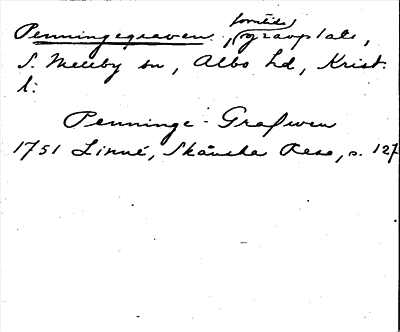 Penningegraven, forntida gravplats,
S. Mellby sn, Albo hd, Krist.
l:
Penninge-Grafwen
1751 Linné, Skånska Resa, s. 127